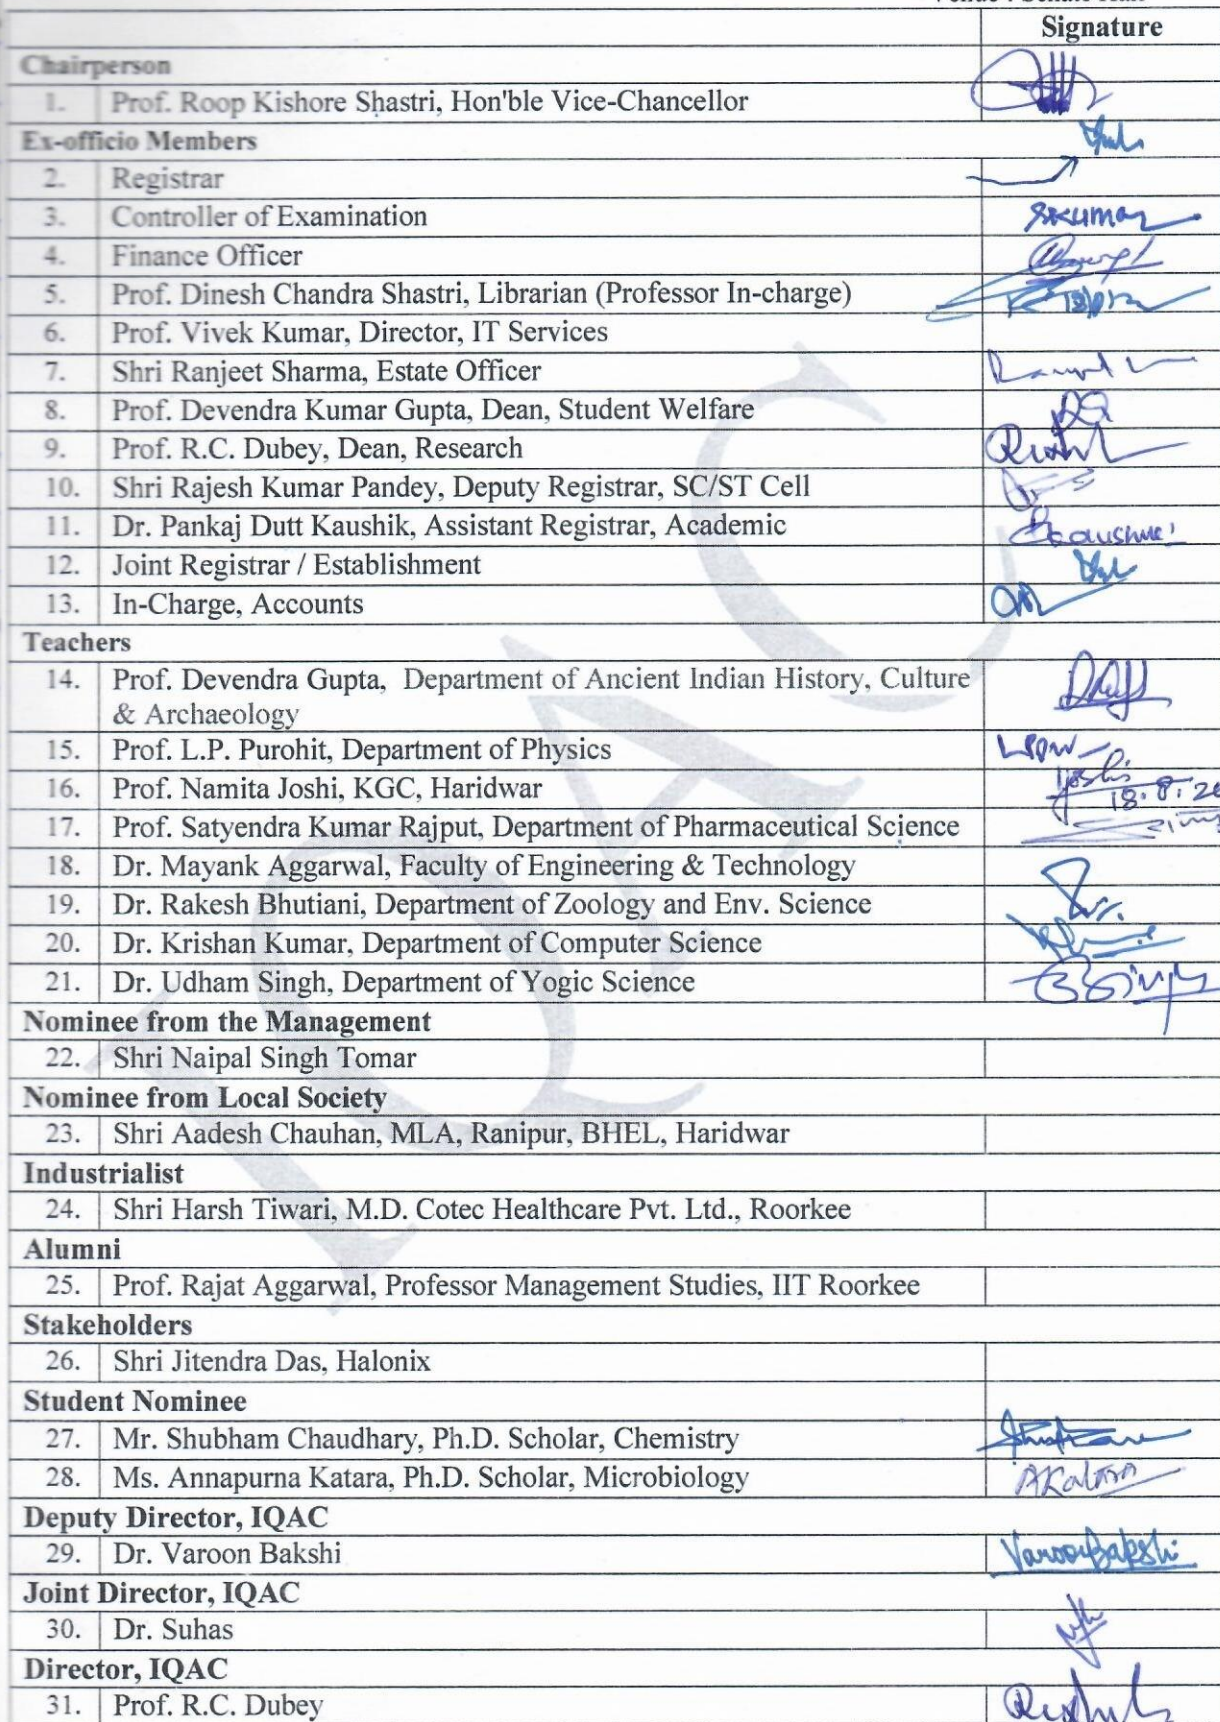 Signature
Chairperson
1. Prof. Roop Kishore Shastri, Hon'ble Vice-Chancellor
Ex-officio Members
2. Registrar
3. Controller of Examination SKumar
4. Finance Officer
5. Prof. Dinesh Chandra Shastri, Librarian (Professor In-charge)
6. Prof. Vivek Kumar, Director, IT Services
7. Shri Ranjeet Sharma, Estate Officer
8. Prof. Devendra Kumar Gupta, Dean, Student Welfare
9. Prof. R.C. Dubey, Dean, Research
10. Shri Rajesh Kumar Pandey, Deputy Registrar, SC/ST Cell
11. Dr. Pankaj Dutt Kaushik, Assistant Registrar, Academic
12. Joint Registrar / Establishment
13. In-Charge, Accounts
Teachers
14. Prof. Devendra Gupta, Department of Ancient Indian History, Culture
& Archaeology
15. Prof. L.P. Purohit, Department of Physics
16. Prof. Namita Joshi, KGC, Haridwar Joshi
17. Prof. Satyendra Kumar Rajput, Department of Pharmaceutical Science
18. Dr. Mayank Aggarwal, Faculty of Engineering & Technology
19. Dr. Rakesh Bhutiani, Department of Zoology and Env. Science
20. Dr. Krishan Kumar, Department of Computer Science
21. Dr. Udham Singh, Department of Yogic Science
Nominee from the Management
22. Shri Naipal Singh Tomar
Nominee from Local Society
23. Shri Aadesh Chauhan, MLA, Ranipur, BHEL, Haridwar
Industrialist
24. Shri Harsh Tiwari, M.D. Cotec Healthcare Pvt. Ltd., Roorkee
Alumni
25. Prof. Rajat Aggarwal, Professor Management Studies, IIT Roorkee
Stakeholders
26. Shri Jitendra Das, Halonix
Student Nominee
27. Mr. Shubham Chaudhary, Ph.D. Scholar, Chemistry
28. Ms. Annapurna Katara, Ph.D. Scholar, Microbiology AKatara
Deputy Director, IQAC
29. Dr. Varoon Bakshi VaroonBakshi
Joint Director, IQAC
30. Dr. Suhas
Director, IQAC
31. Prof. R.C. Dubey
IQAC